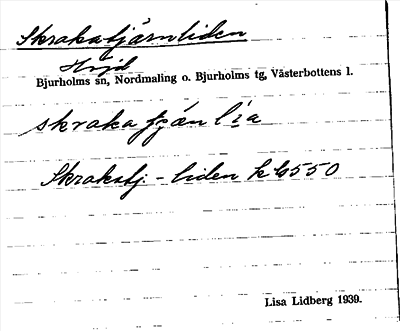 Skrakatjärnliden
Höjd
Bjurholms sn, Nordmaling o. Bjurholms tg, Västerbottens l.
skraka tjänlia
Skrakatj.-liden k 550
Lisa Lidberg 1939.